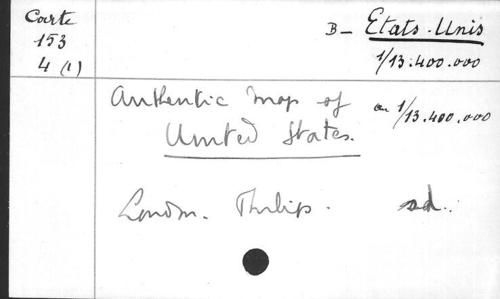 Carte
153
4 (1)
B- Etats-Unis
1/13.400.000
Authentic map of
au 1/13.400.000
United States.
London. Philip. sd.